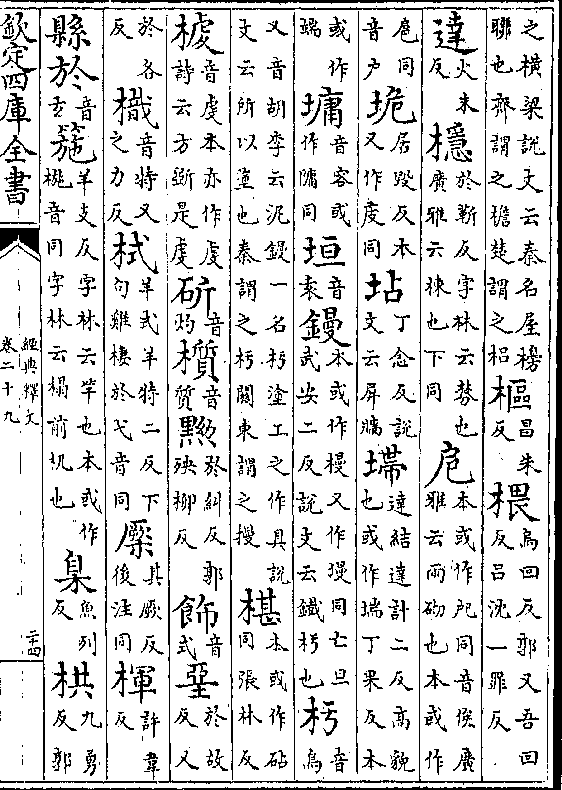 之横梁說文云秦名屋櫋聯也齊謂之檐楚謂之梠樞昌朱反椳烏回反郭又吾回反吕沈一罪反
達火未反檼於靳反字林云棼也廣雅云棟也下同戹本或作戺同音俟廣雅云雨砌也本或作
扈同音户垝居毁反本又作庪同坫丁念反說文云屏牆也或作㙐達結達計二反高貌也或作瑞丁果反本
或作端墉音容或作㙛同垣音袁鏝本或作槾又作墁同亡旦武安二反說文云鐵杇也杇音烏
又音胡李云泥鏝一名杇塗工之作具說文云所以塗也秦謂之杇關東謂之槾椹本或作砧同張林反
榩音虔本亦作虔詩云方斵是虔斫音灼櫍音質黝於糾反郭殃柳反飾音式堊於故反又
於各反樴音特又之力反栻羊式羊特二反下句雞棲於弋音同橜其厥反後注同楎許韋反
縣於音玄箷羊支反字林云竿也本或作椸音同字林云榻前几也臬魚列反栱九勇反郭
欽定四庫全書
經典釋文
卷二十九
二十四